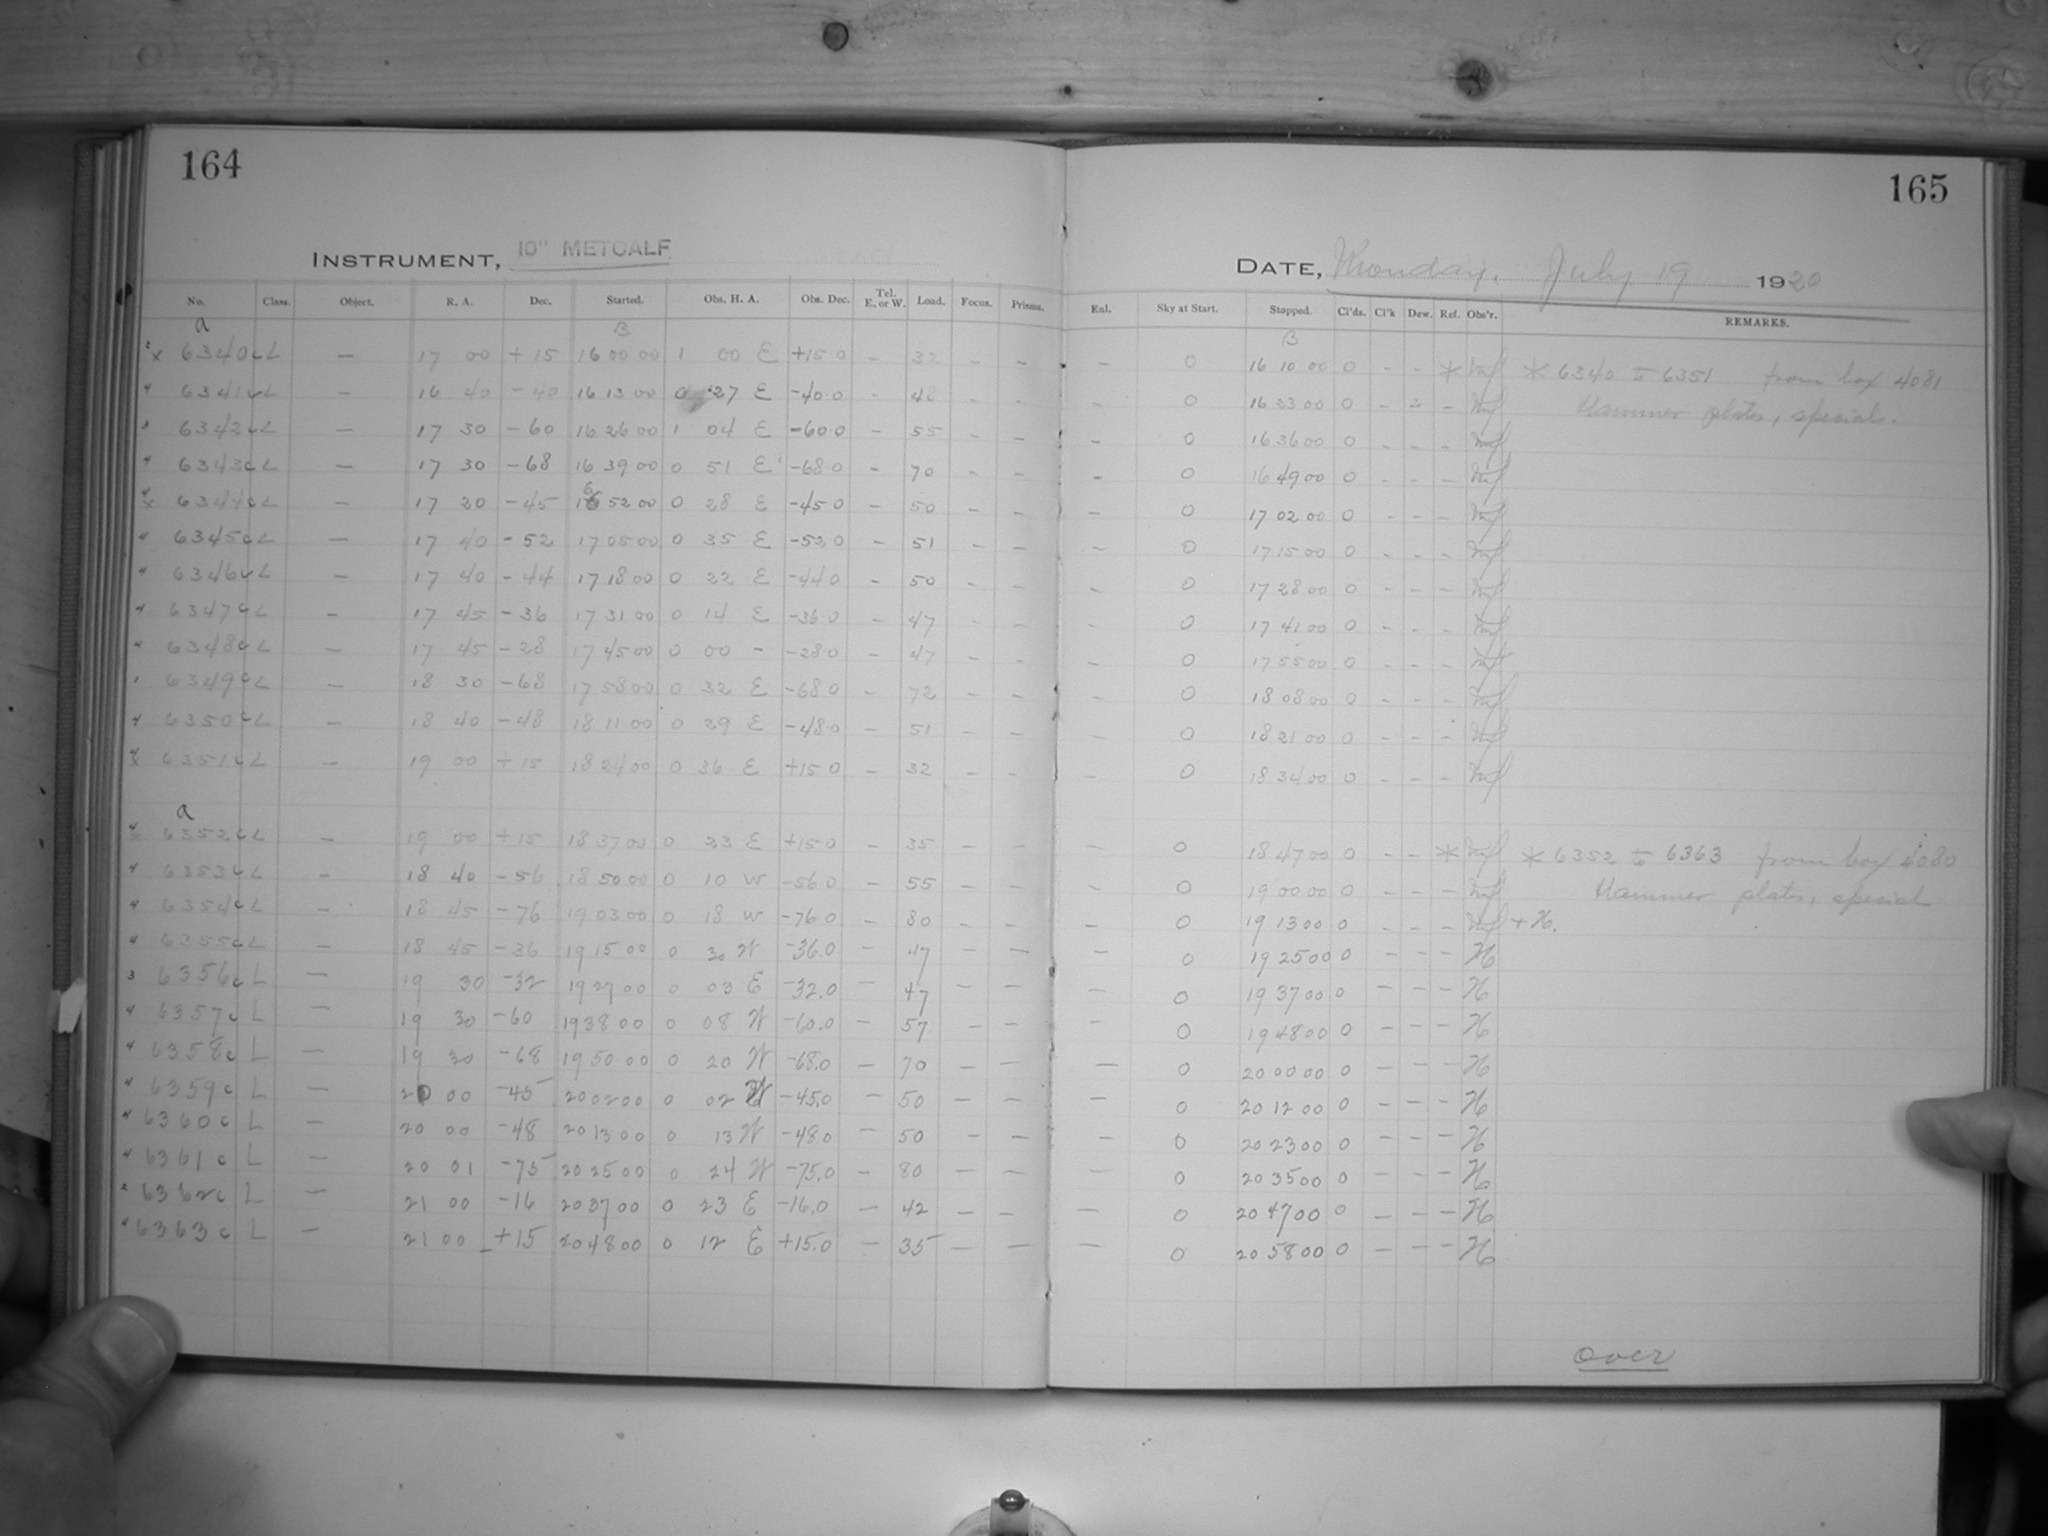 164
165
INSTRUMENT, 10" METCALF
DATE, Monday, July 19 1920
No. Class. Object. R. A. Dec. Started. Obs. H. A. Obs. Dec. Tel. E. or W. Load. Focus. Prisms. Enl. Sky at Start. Stopped. Cl'ds. Cl'k Dew. Ref. Obs'r. REMARKS.
a B B
2 x 6340 c L — 17 00 +15 16 00 00 1 00 E +15 0 - 32 - - - 0 16 10 00 0 - - * * 6340 to 6351 from box 4081
4 6341 c L — 16 40 -40 16 13 00 0 27 E -40 0 - 48 - - - 0 16 23 00 0 - - - Hammer plates, special.
3 6342 c L — 17 30 -60 16 26 00 1 04 E -60 0 - 55 - - - 0 16 36 00 0 - - -
4 6343 c L — 17 30 -68 16 39 00 0 51 E -68 0 - 70 - - - 0 16 49 00 0 - - -
4 x 6344 c L — 17 20 -45 16 52 00 0 28 E -45 0 - 50 - - - 0 17 02 00 0 - - -
4 6345 c L — 17 40 -52 17 05 00 0 35 E -52 0 - 51 - - - 0 17 15 00 0 - - -
4 6346 c L — 17 40 -44 17 18 00 0 22 E -44 0 - 50 - - - 0 17 28 00 0 - - -
4 6347 c L — 17 45 -36 17 31 00 0 14 E -36 0 - 47 - - - 0 17 41 00 0 - - -
4 6348 c L — 17 45 -28 17 45 00 0 00 - -28 0 - 47 - - - 0 17 55 00 0 - - -
1 6349 c L — 18 30 -68 17 58 00 0 32 E -68 0 - 72 - - - 0 18 08 00 0 - - -
4 6350 c L — 18 40 -48 18 11 00 0 29 E -48 0 - 51 - - - 0 18 21 00 0 - - -
4 x 6351 c L — 19 00 +15 18 24 00 0 36 E +15 0 - 32 - - - 0 18 34 00 0 - - -
a
4 x 6352 c L — 19 00 +15 18 37 00 0 23 E +15 0 - 35 - - - 0 18 47 00 0 - - * * 6352 to 6363 from box 4080
4 6353 c L — 18 40 -56 18 50 00 0 10 W -56 0 - 55 - - - 0 19 00 00 0 - - - Hammer plates, special
4 6354 c L — 18 45 -76 19 03 00 0 18 W -76 0 - 80 - - - 0 19 13 00 0 - - - + H.
4 6355 c L — 18 45 -36 19 15 00 0 30 W -36.0 - 47 - - - 0 19 25 00 0 - - - H
3 6356 c L — 19 30 -32 19 27 00 0 03 E -32.0 - 47 - - - 0 19 37 00 0 - - - H
4 6357 c L — 19 30 -60 19 38 00 0 08 W -60.0 - 57 - - - 0 19 48 00 0 - - - H
4 6358 c L — 19 30 -68 19 50 00 0 20 W -68.0 - 70 - - - 0 20 00 00 0 - - - H
4 6359 c L — 20 00 -45 20 02 00 0 02 W -45.0 - 50 - - - 0 20 12 00 0 - - - H
4 6360 c L — 20 00 -48 20 13 00 0 13 W -48.0 - 50 - - - 0 20 23 00 0 - - - H
4 6361 c L — 20 01 -75 20 25 00 0 24 W -75.0 - 80 - - - 0 20 35 00 0 - - - H
2 6362 c L — 21 00 -16 20 37 00 0 23 E -16.0 - 42 - - - 0 20 47 00 0 - - - H
4 6363 c L — 21 00 +15 20 48 00 0 12 E +15.0 - 35 - - - 0 20 58 00 0 - - - H
over